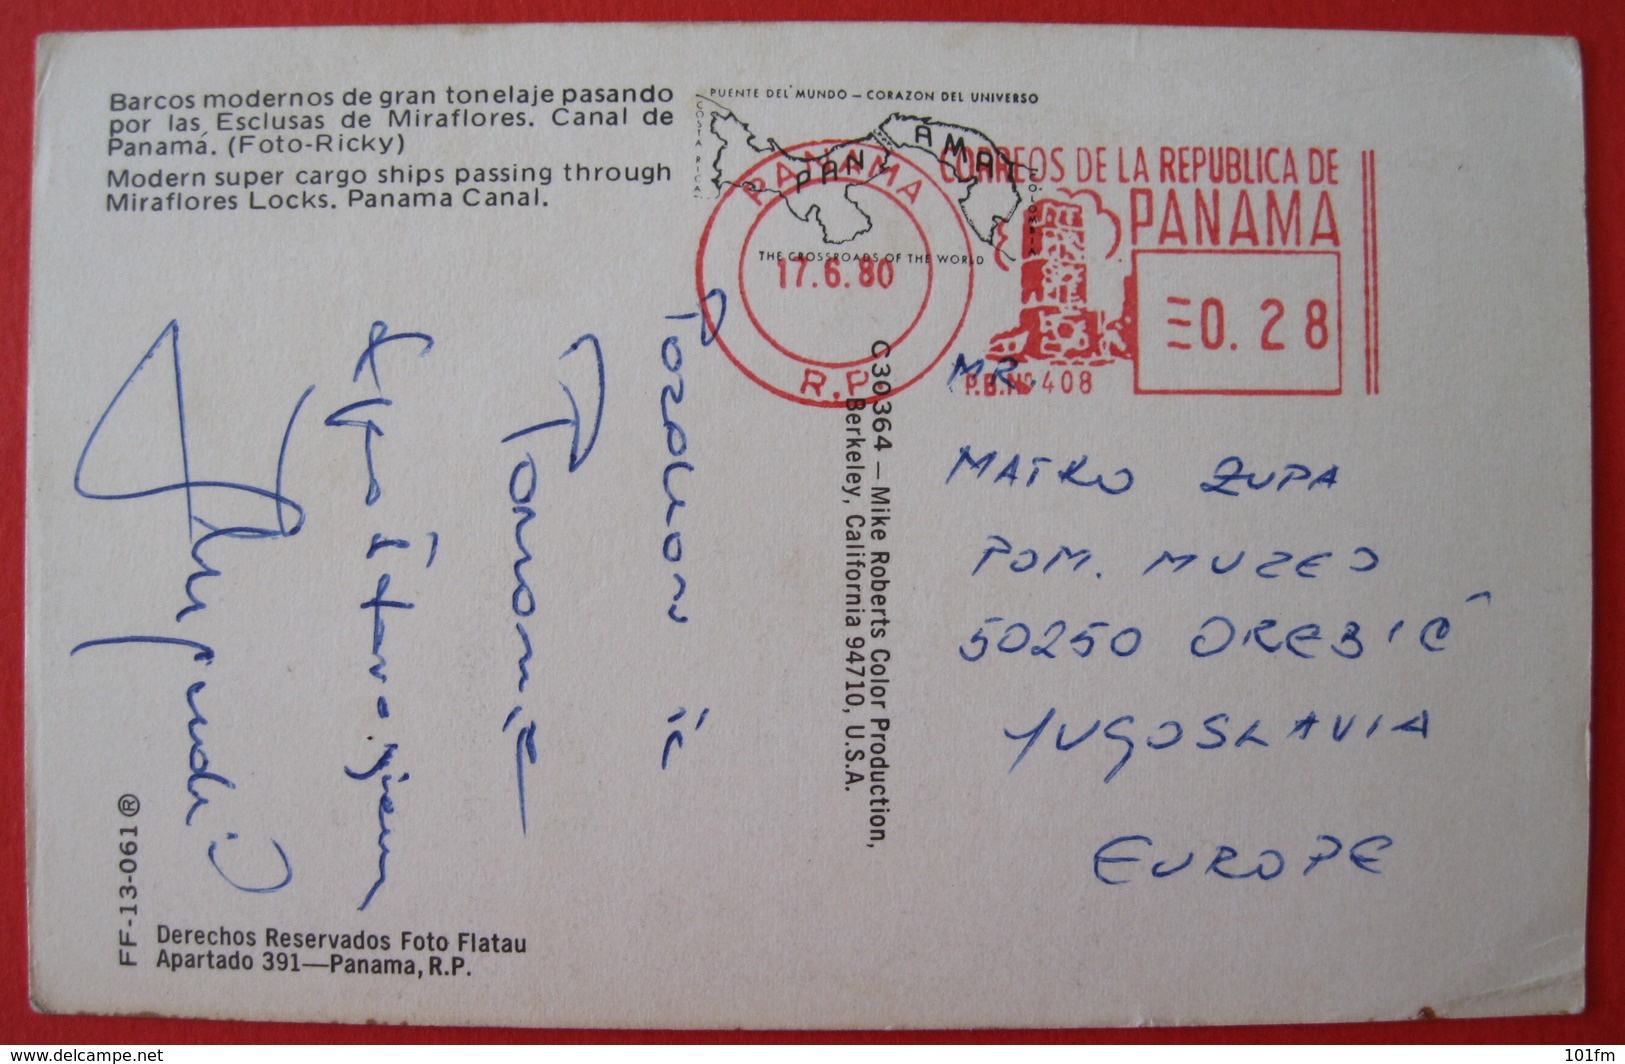 Barcos modernos de gran tonelaje pasando
por las Esclusas de Miraflores. Canal de
Panamá. (Foto-Ricky)
Modern super cargo ships passing through
Miraflores Locks. Panama Canal.
PUENTE DEL MUNDO – CORAZON DEL UNIVERSO
COSTA RICA
PANAMA
COLOMBIA
THE CROSSROADS OF THE WORLD
PANAMA
17.6.80
R.P.
CORREOS DE LA REPUBLICA DE
PANAMA
0.28
P.B.Nº 408
MR.
MATKO ZUPA
POM. MUZEJ
50250 OREBIĆ
YUGOSLAVIA
EUROPE
C30364 — Mike Roberts Color Production,
Berkeley, California 94710, U.S.A.
Pozdravi iz
Paname
FF-13-061 ®
Derechos Reservados Foto Flatau
Apartado 391—Panama, R.P.
delcampe.net
101fm